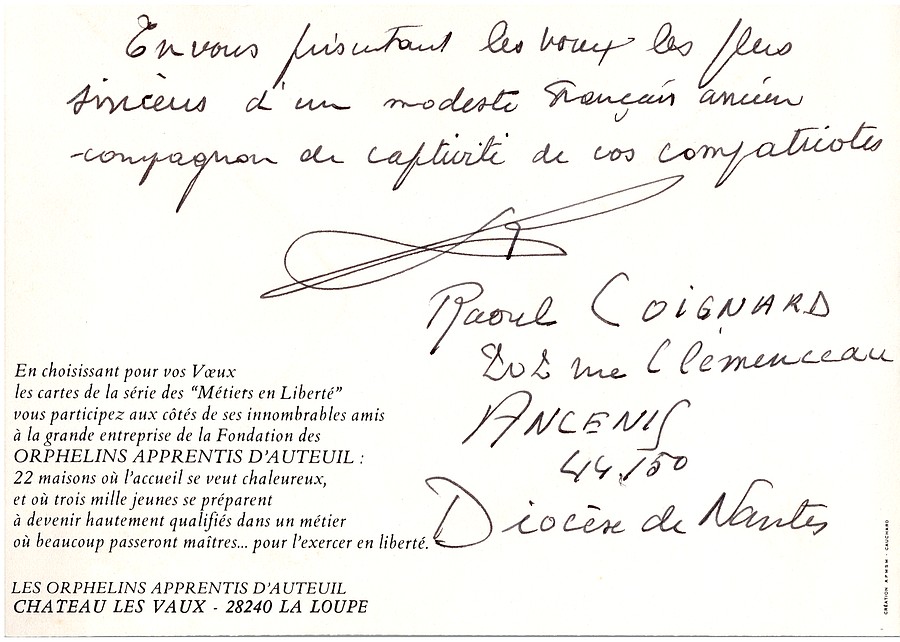 En vous présentant les voeux les plus
sincères d'un modeste Français ancien
compagnon de captivité de vos compatriotes
Raoul COIGNARD
202 rue Clémenceau
ANCENIS
44.150
Diocèse de Nantes
En choisissant pour vos Vœux
les cartes de la série des “Métiers en Liberté”
vous participez aux côtés de ses innombrables amis
à la grande entreprise de la Fondation des
ORPHELINS APPRENTIS D'AUTEUIL :
22 maisons où l'accueil se veut chaleureux,
et où trois mille jeunes se préparent
à devenir hautement qualifiés dans un métier
où beaucoup passeront maîtres... pour l'exercer en liberté.
LES ORPHELINS APPRENTIS D'AUTEUIL
CHATEAU LES VAUX - 28240 LA LOUPE
CRÉATION - CAUCHARD